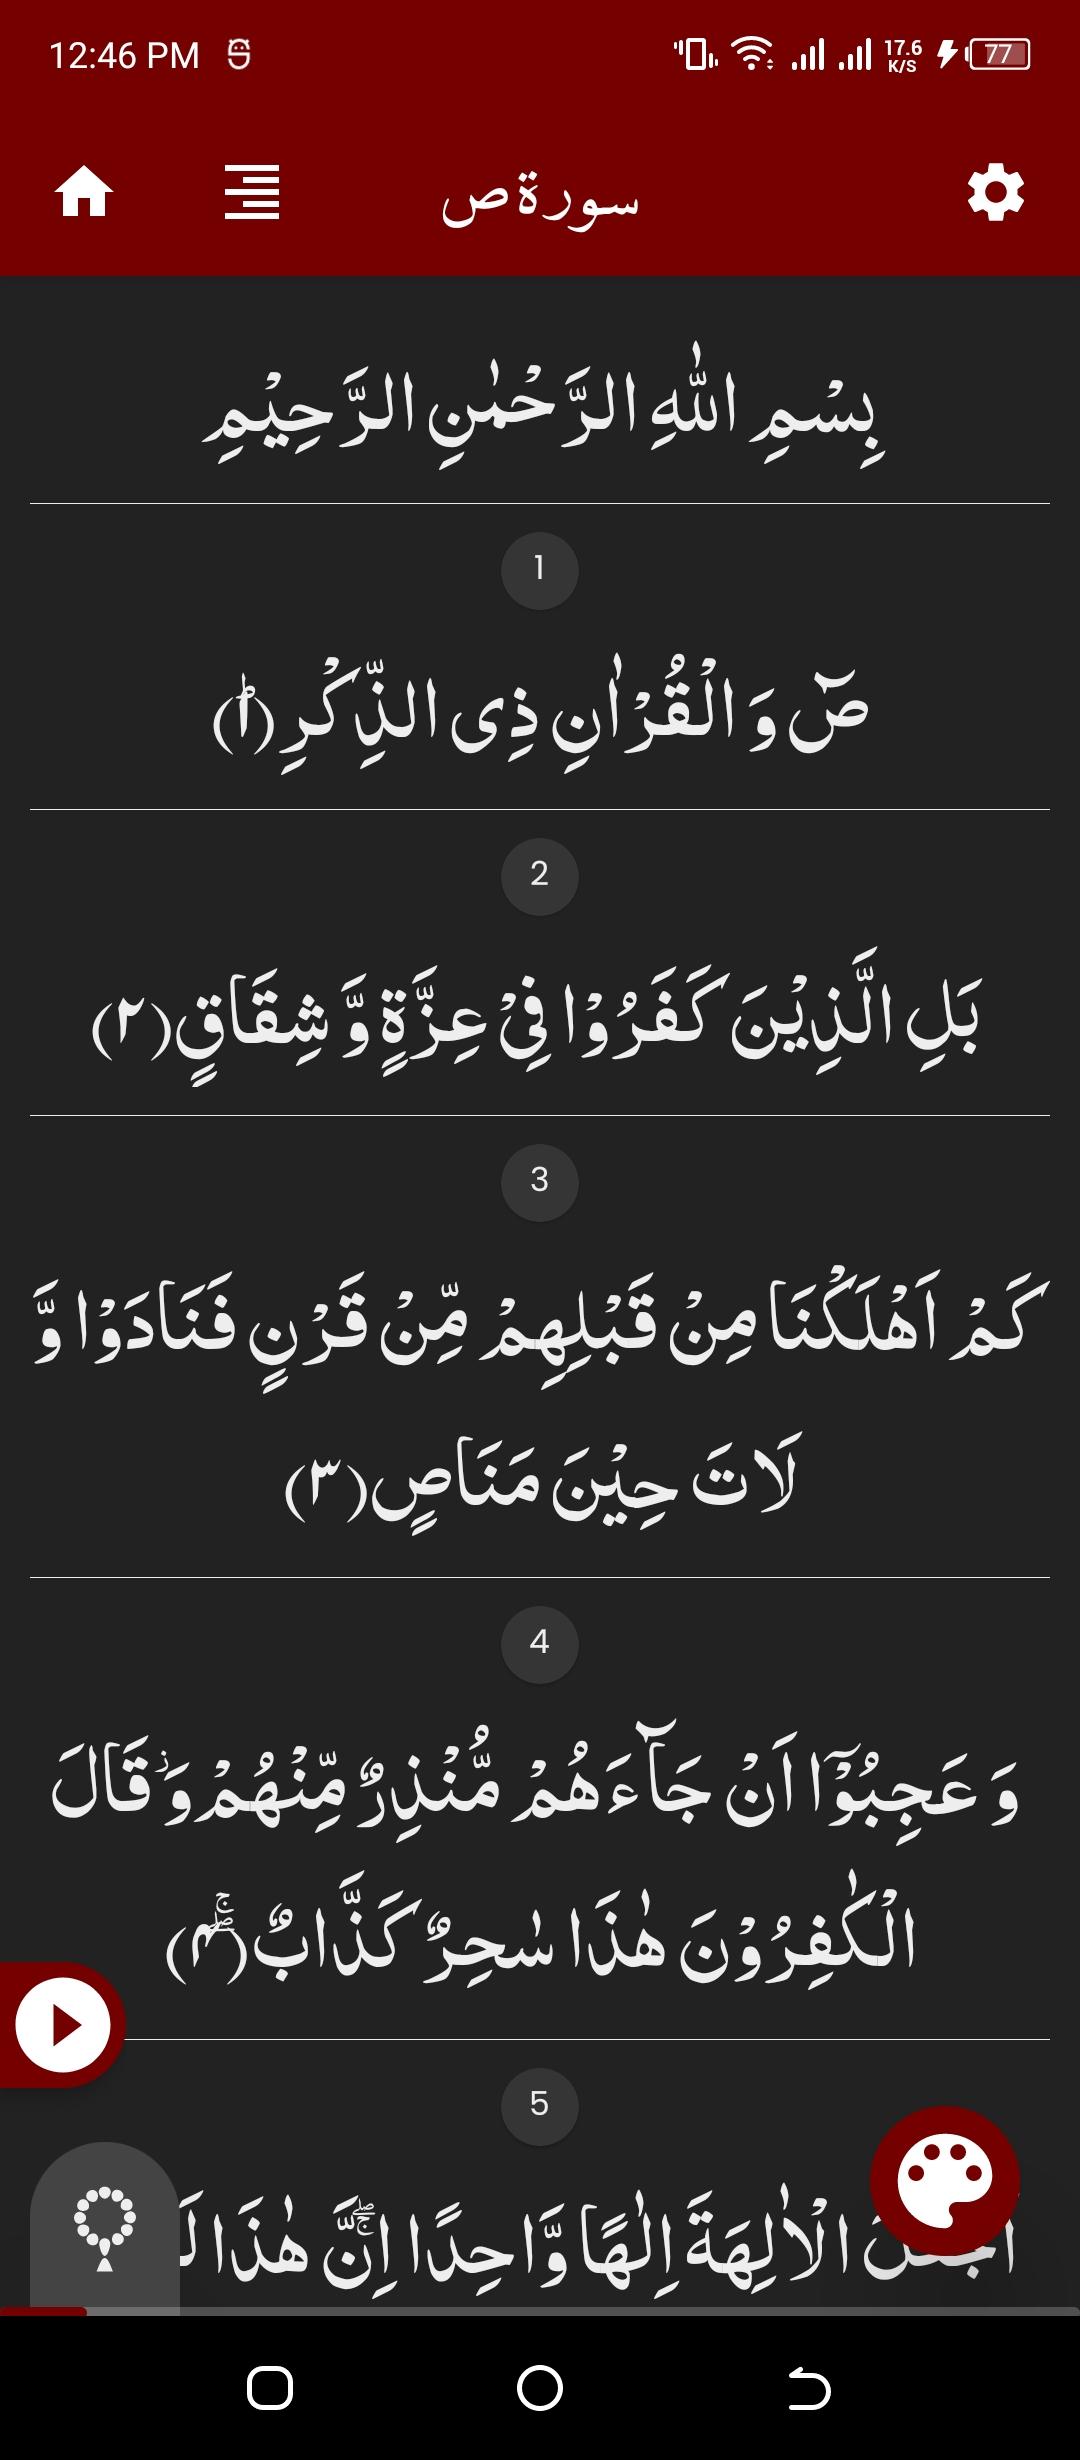 12:46 PM
17.6
K/S
77
سورة ص
بِسْمِ اللّٰهِ الرَّحْمٰنِ الرَّحِیْمِ
1
صٓ وَ الْقُرْاٰنِ ذِی الذِّكْرِ(۱)ؕ
2
بَلِ الَّذِیْنَ كَفَرُوْا فِیْ عِزَّةٍ وَّ شِقَاقٍ(۲)
3
كَمْ اَهْلَكْنَا مِنْ قَبْلِهِمْ مِّنْ قَرْنٍ فَنَادَوْا وَّ
لَاتَ حِیْنَ مَنَاصٍ(۳)
4
وَ عَجِبُوْۤا اَنْ جَآءَهُمْ مُّنْذِرٌ مِّنْهُمْ٘-وَ قَالَ
الْكٰفِرُوْنَ هٰذَا سٰحِرٌ كَذَّابٌ(۴)ۖۚ
5
اَجَعَلَ الْاٰلِهَةَ اِلٰهًا وَّاحِدًا ۖۚاِنَّ هٰذَا